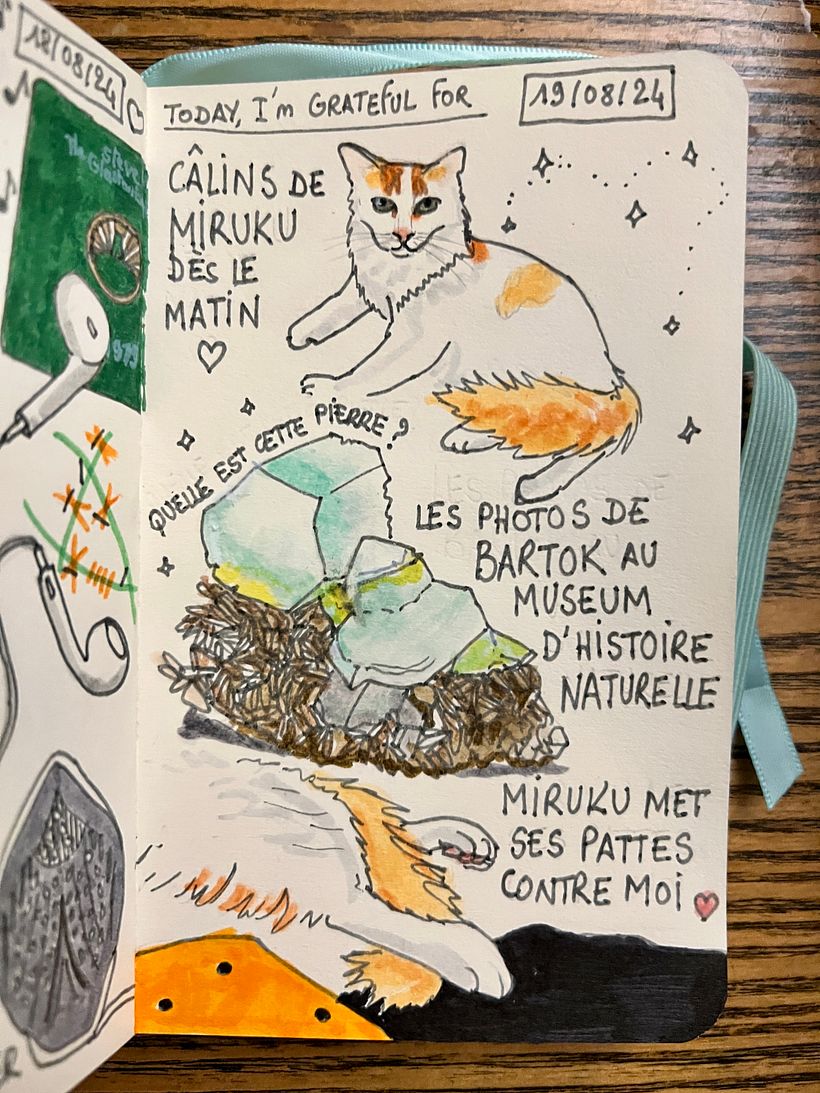 18/08/24
1979
TODAY, I'm GRATEFUL FOR
19/08/24
CÂLINS DE
MIRUKU
DÈS LE
MATIN
QUELLE EST CETTE PIERRE ?
LES PHOTOS DE
BARTOK AU
MUSEUM
D'HISTOIRE
NATURELLE
MIRUKU MET
SES PATTES
CONTRE MOI